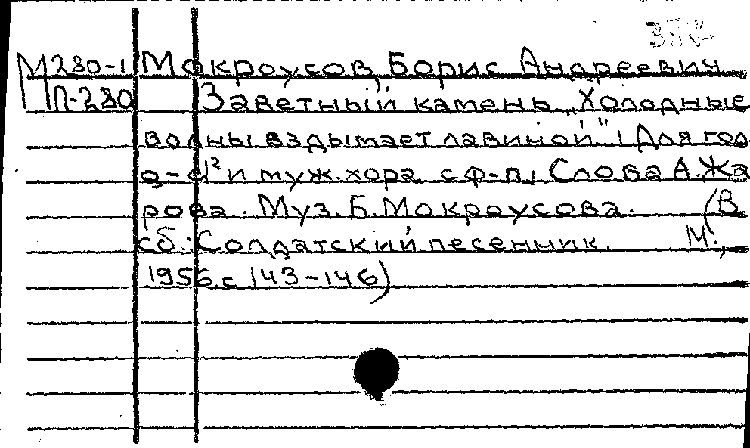 М280-1 Мокроусов, Борис Андреевич
П-280 Заветный камень „Холодные
волны вздымает лавиной" / Для голо
и муж. хора с ф-п./ Слова А. Жа
рова. Муз. Б. Мокроусова. (В
сб.: Солдатский песенник. М.,
1956. с 143-146)